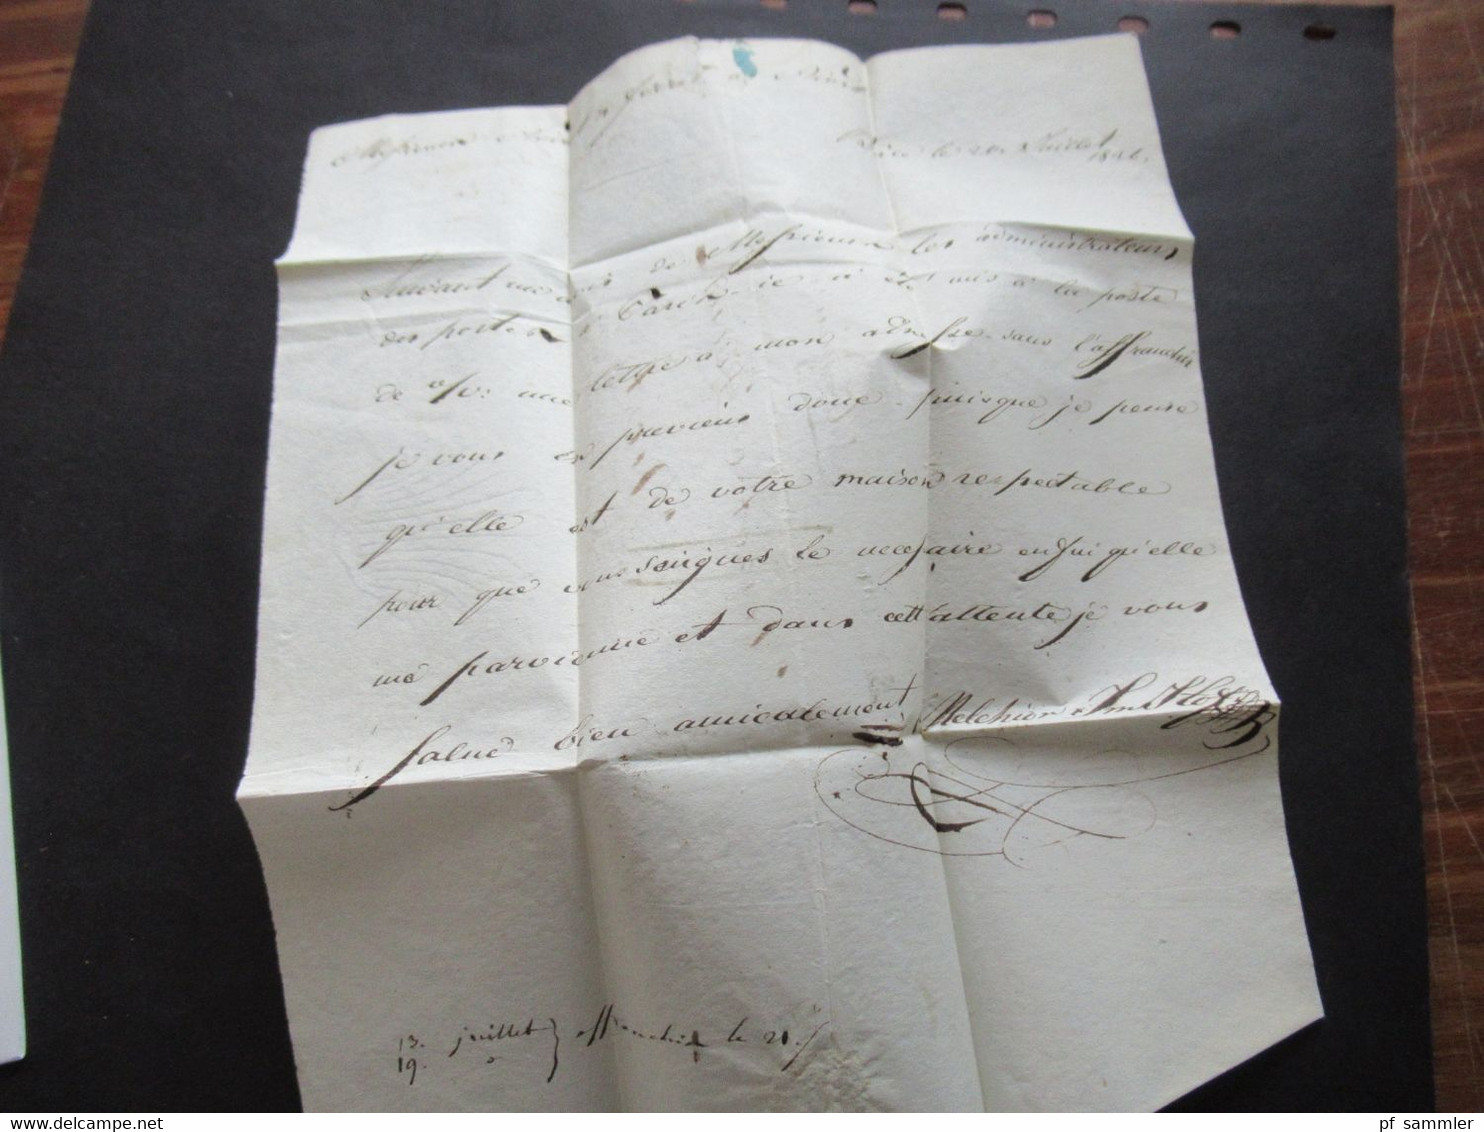 Messieurs
le 20 Juillet
Suivant avis de Messieurs les administrateurs
des postes a Paris il a été mis à la poste
de une lettre à mon adresse sans l'affranchir
je vous en previens donc puisque je pense
qu'elle est de votre maison respectable
pour que vous soignies le necessaire enfin qu'elle
me parvienne et dans cett attente je vous
salue bien amicalement Melchior
13. juillet
19. affranchi le 21
pf_sammler